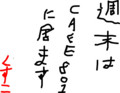 週末は
CAFE801
に居ます
くすこ